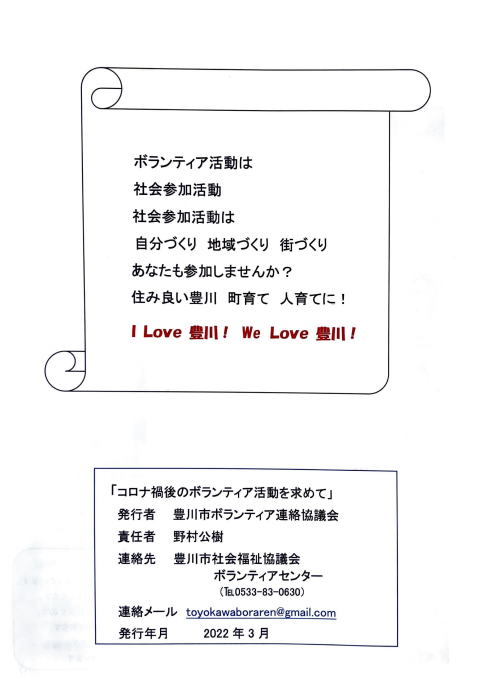 ボランティア活動は
社会参加活動
社会参加活動は
自分づくり 地域づくり 街づくり
あなたも参加しませんか？
住み良い豊川 町育て 人育てに！
I Love 豊川！ We Love 豊川！
「コロナ禍後のボランティア活動を求めて」
発行者 豊川市ボランティア連絡協議会
責任者 野村公樹
連絡先 豊川市社会福祉協議会
ボランティアセンター
（℡0533-83-0630）
連絡メール toyokawaboraren@gmail.com
発行年月 2022 年 3 月